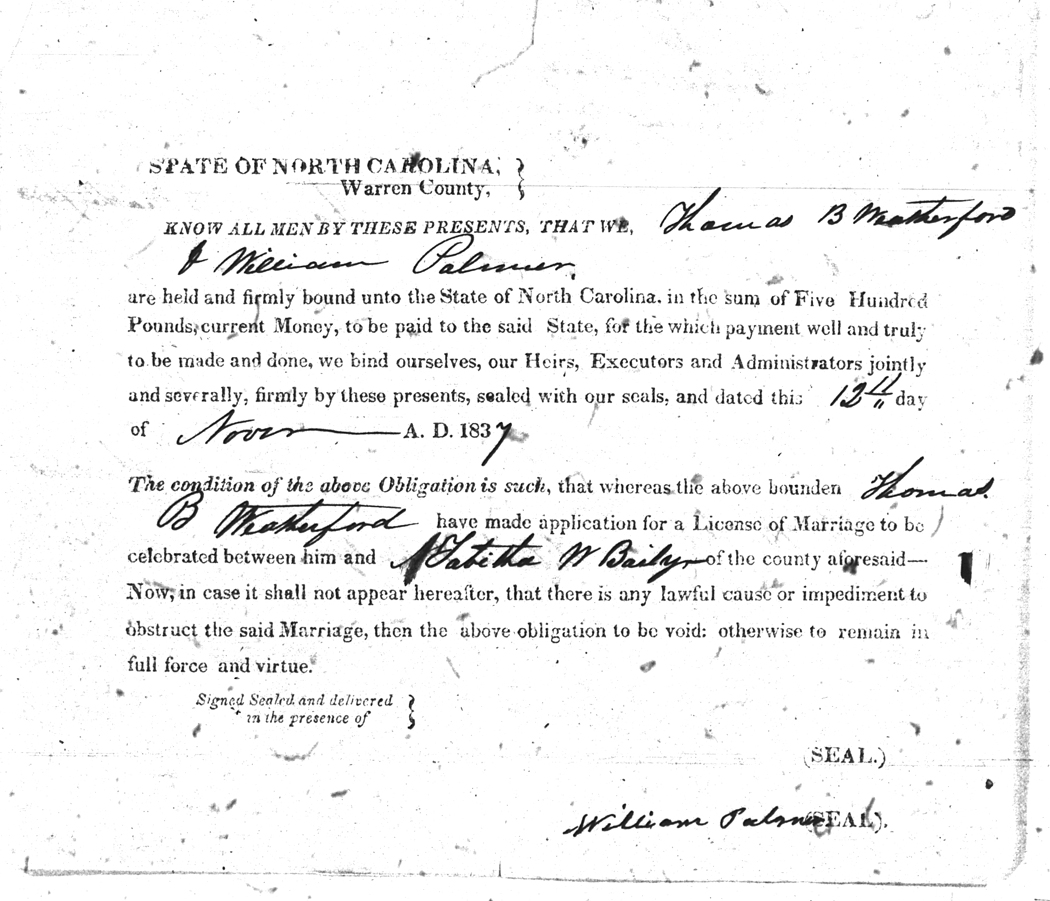 STATE OF NORTH CAROLINA,
Warren County,
KNOW ALL MEN BY THESE PRESENTS, THAT WE, Thomas B Weatherford
& William Palmer,
are held and firmly bound unto the State of North Carolina, in the sum of Five Hundred
Pounds, current Money, to be paid to the said State, for the which payment well and truly
to be made and done, we bind ourselves, our Heirs, Executors and Administrators jointly
and severally, firmly by these presents, sealed with our seals, and dated this 12th day
of Novem A. D. 1837
The condition of the above Obligation is such, that whereas the above bounden Thomas
B Weatherford have made application for a License of Marriage to be
celebrated between him and Tabitha W Baily of the county aforesaid—
Now, in case it shall not appear hereafter, that there is any lawful cause or impediment to
obstruct the said Marriage, then the above obligation to be void: otherwise to remain in
full force and virtue.
Signed Sealed and delivered
in the presence of
(SEAL.)
William Palmer (SEAL).